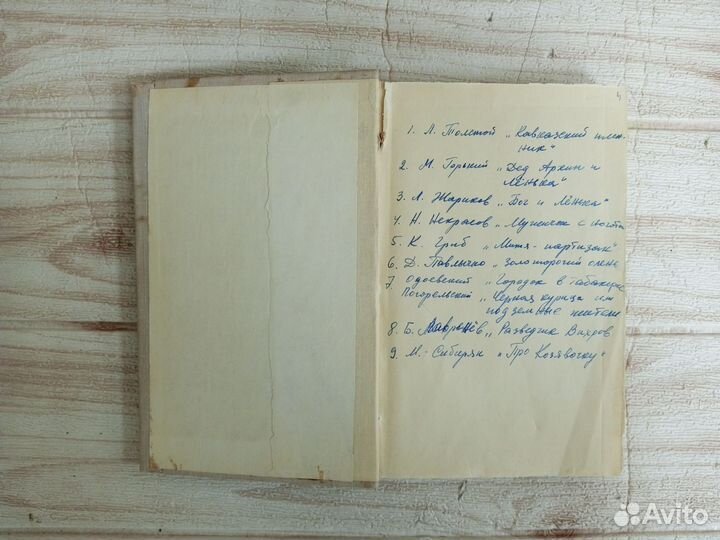 1. Л. Толстой „Кавказский плен-
ник"
2. М. Горький „Дед Архип и
Лёнька"
3. Л. Жариков „Бог и Лёнька"
4. Н. Некрасов „Мужичок с ногот
5. К. Гриб „Митя - партизан"
6. Д. Павлычко „Золоторогий олень
7 Одоевский „Городок в табакерке
Погорельский „Черная курица или
подземные жители
8. Б. Лавренёв „Разведчик Вихров
9. М.-Сибиряк „Про Козявочку"
Avito